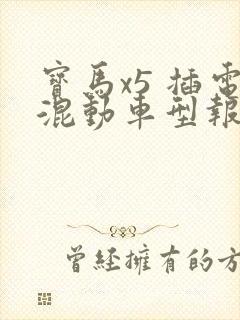 寶馬x5 插電
混動車型報
曾經擁有的方